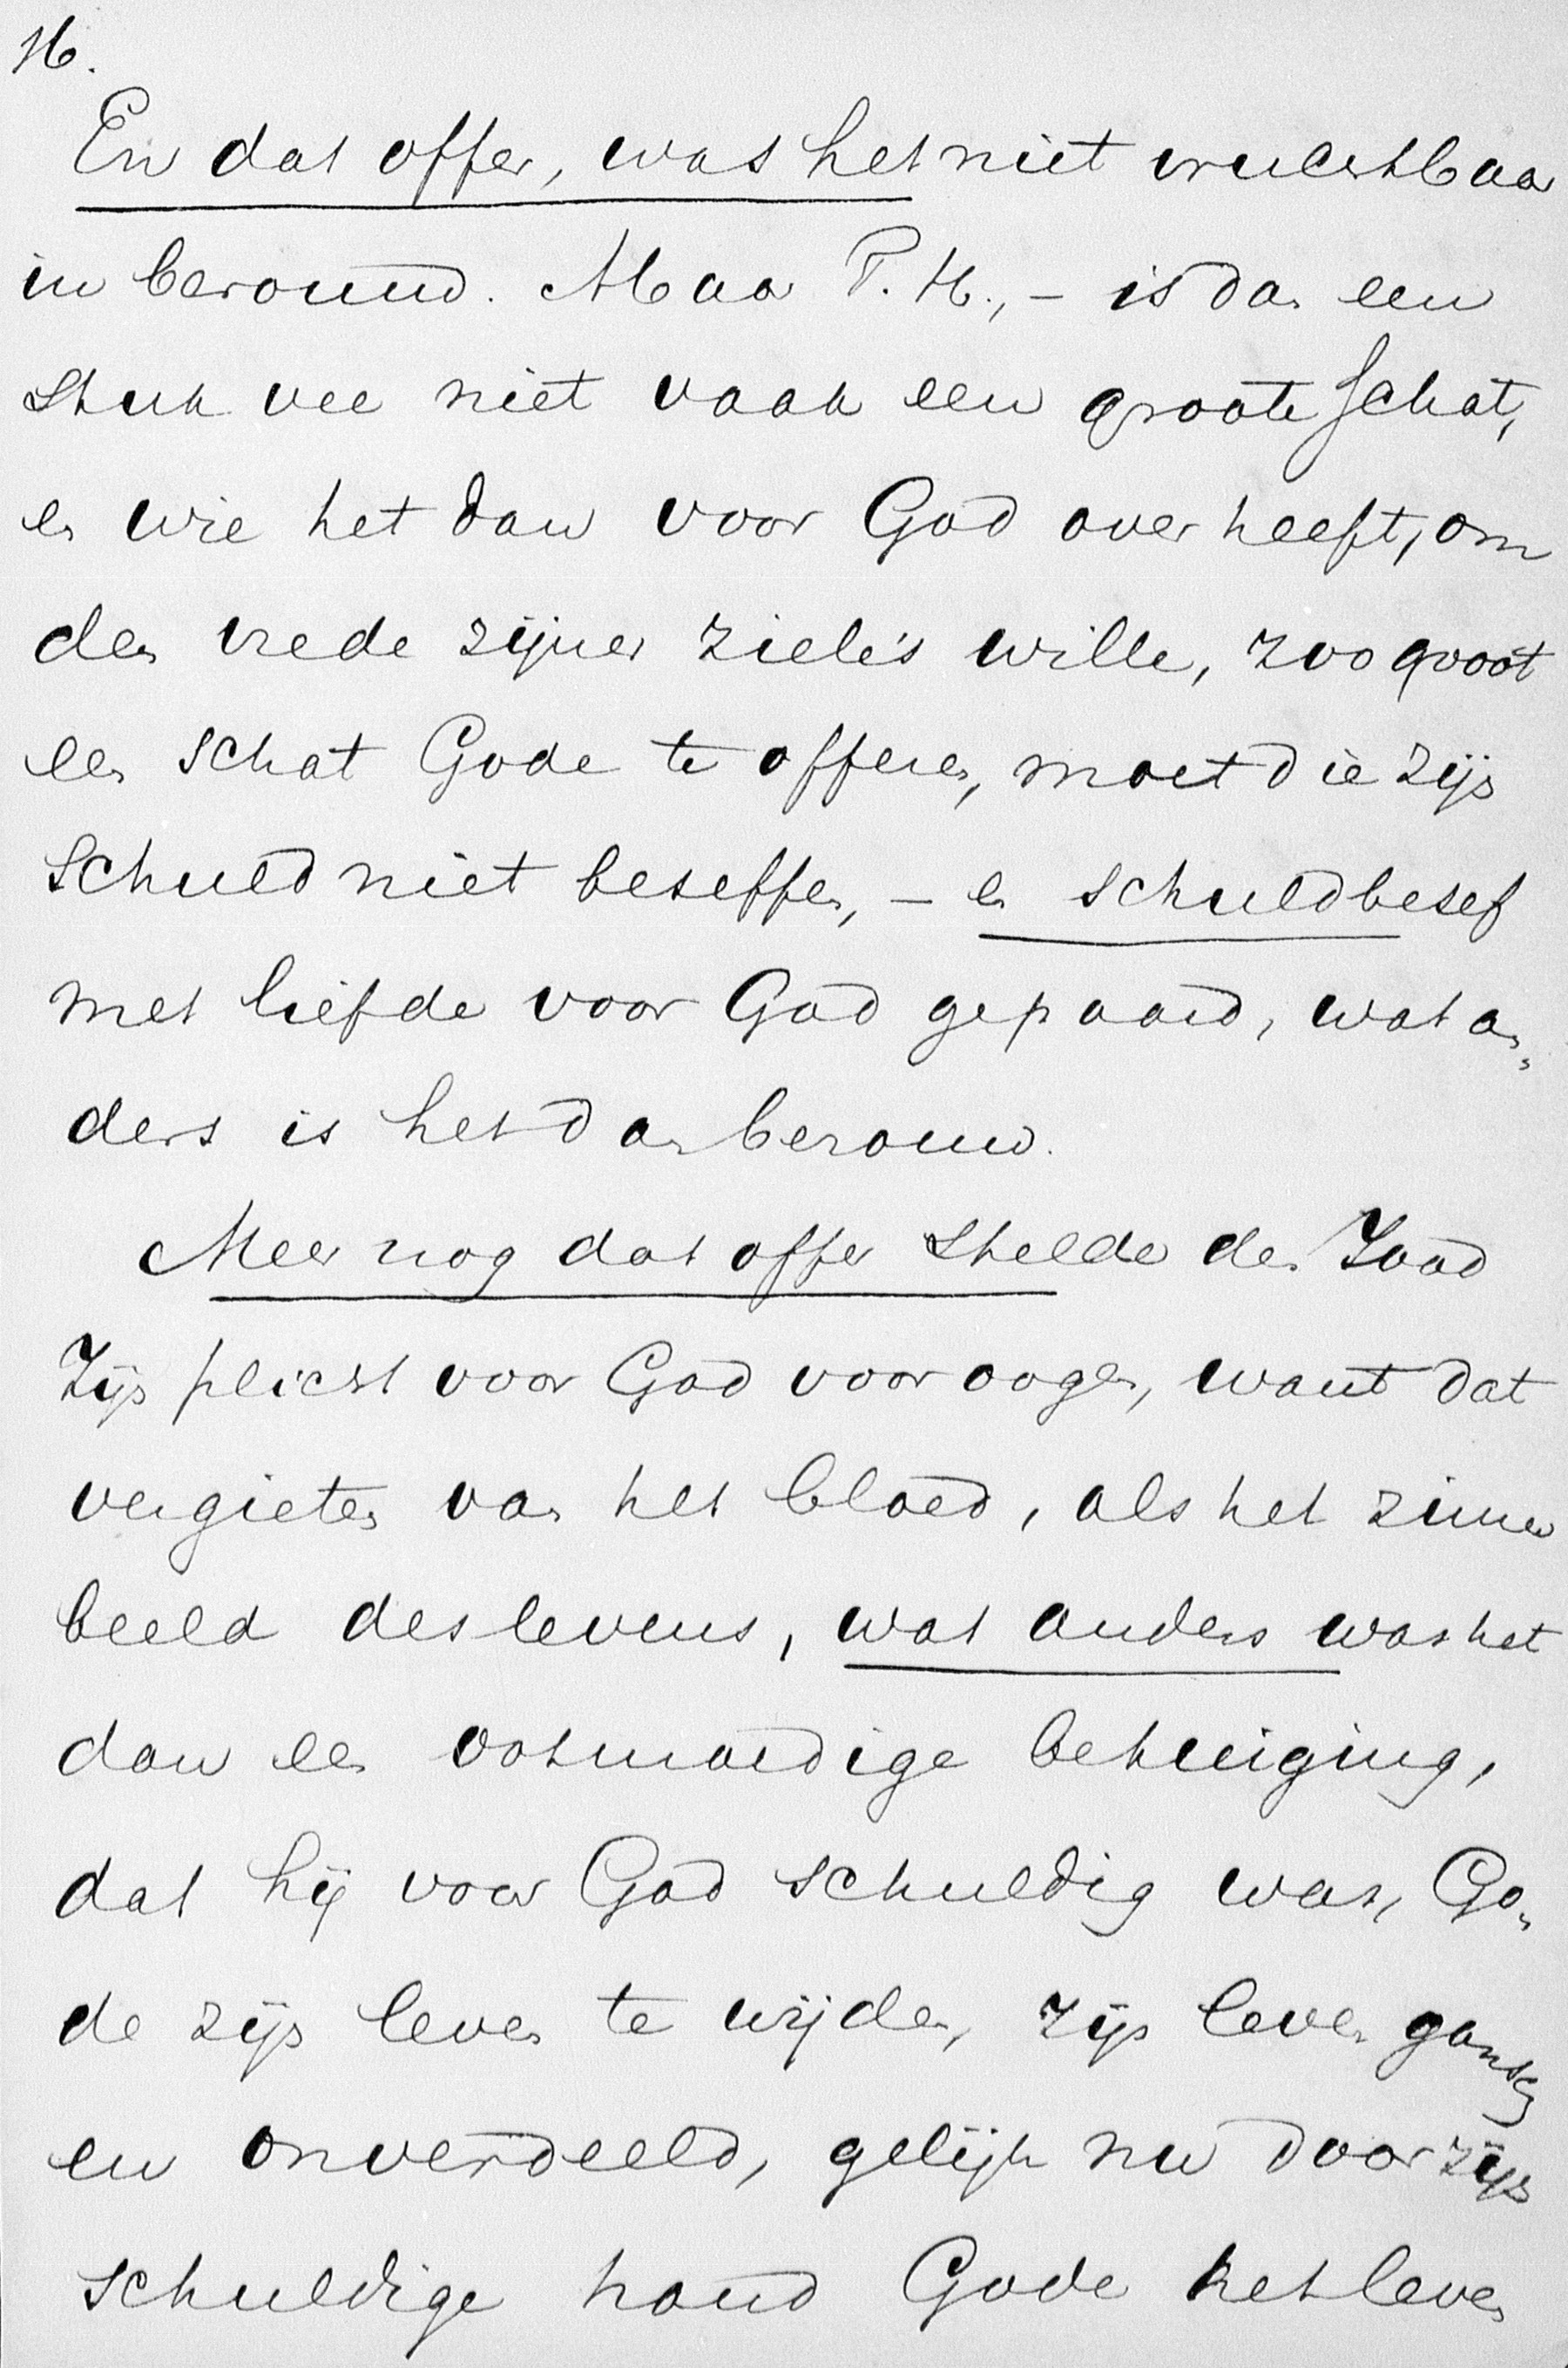 16.
En dat offer, was het niet vruchtbaar
in berouw. Maar T. H., – is dan een
stuk vee niet vaak een groote schat,
en wie het dan voor God over heeft, om
den vrede zijner ziele's wille, zoo groot
een schat Gode te offeren, moet die zijn
schuld niet beseffen, – en schuldbesef
met liefde voor God gepaard, wat an„
ders is het dan berouw.
Meer nog dat offer stelde den Jood
zijn plicht voor God voor oogen, want dat
vergieten van het bloed, als het zinne
beeld des levens, wat anders was het
dan een ootmoedige betuiging,
dat hij voor God schuldig was, Go„
de zijn leven te wijden, zijn leven gansch
en onverdeeld, gelijk nu door zijn
schuldige hand Gode het leven